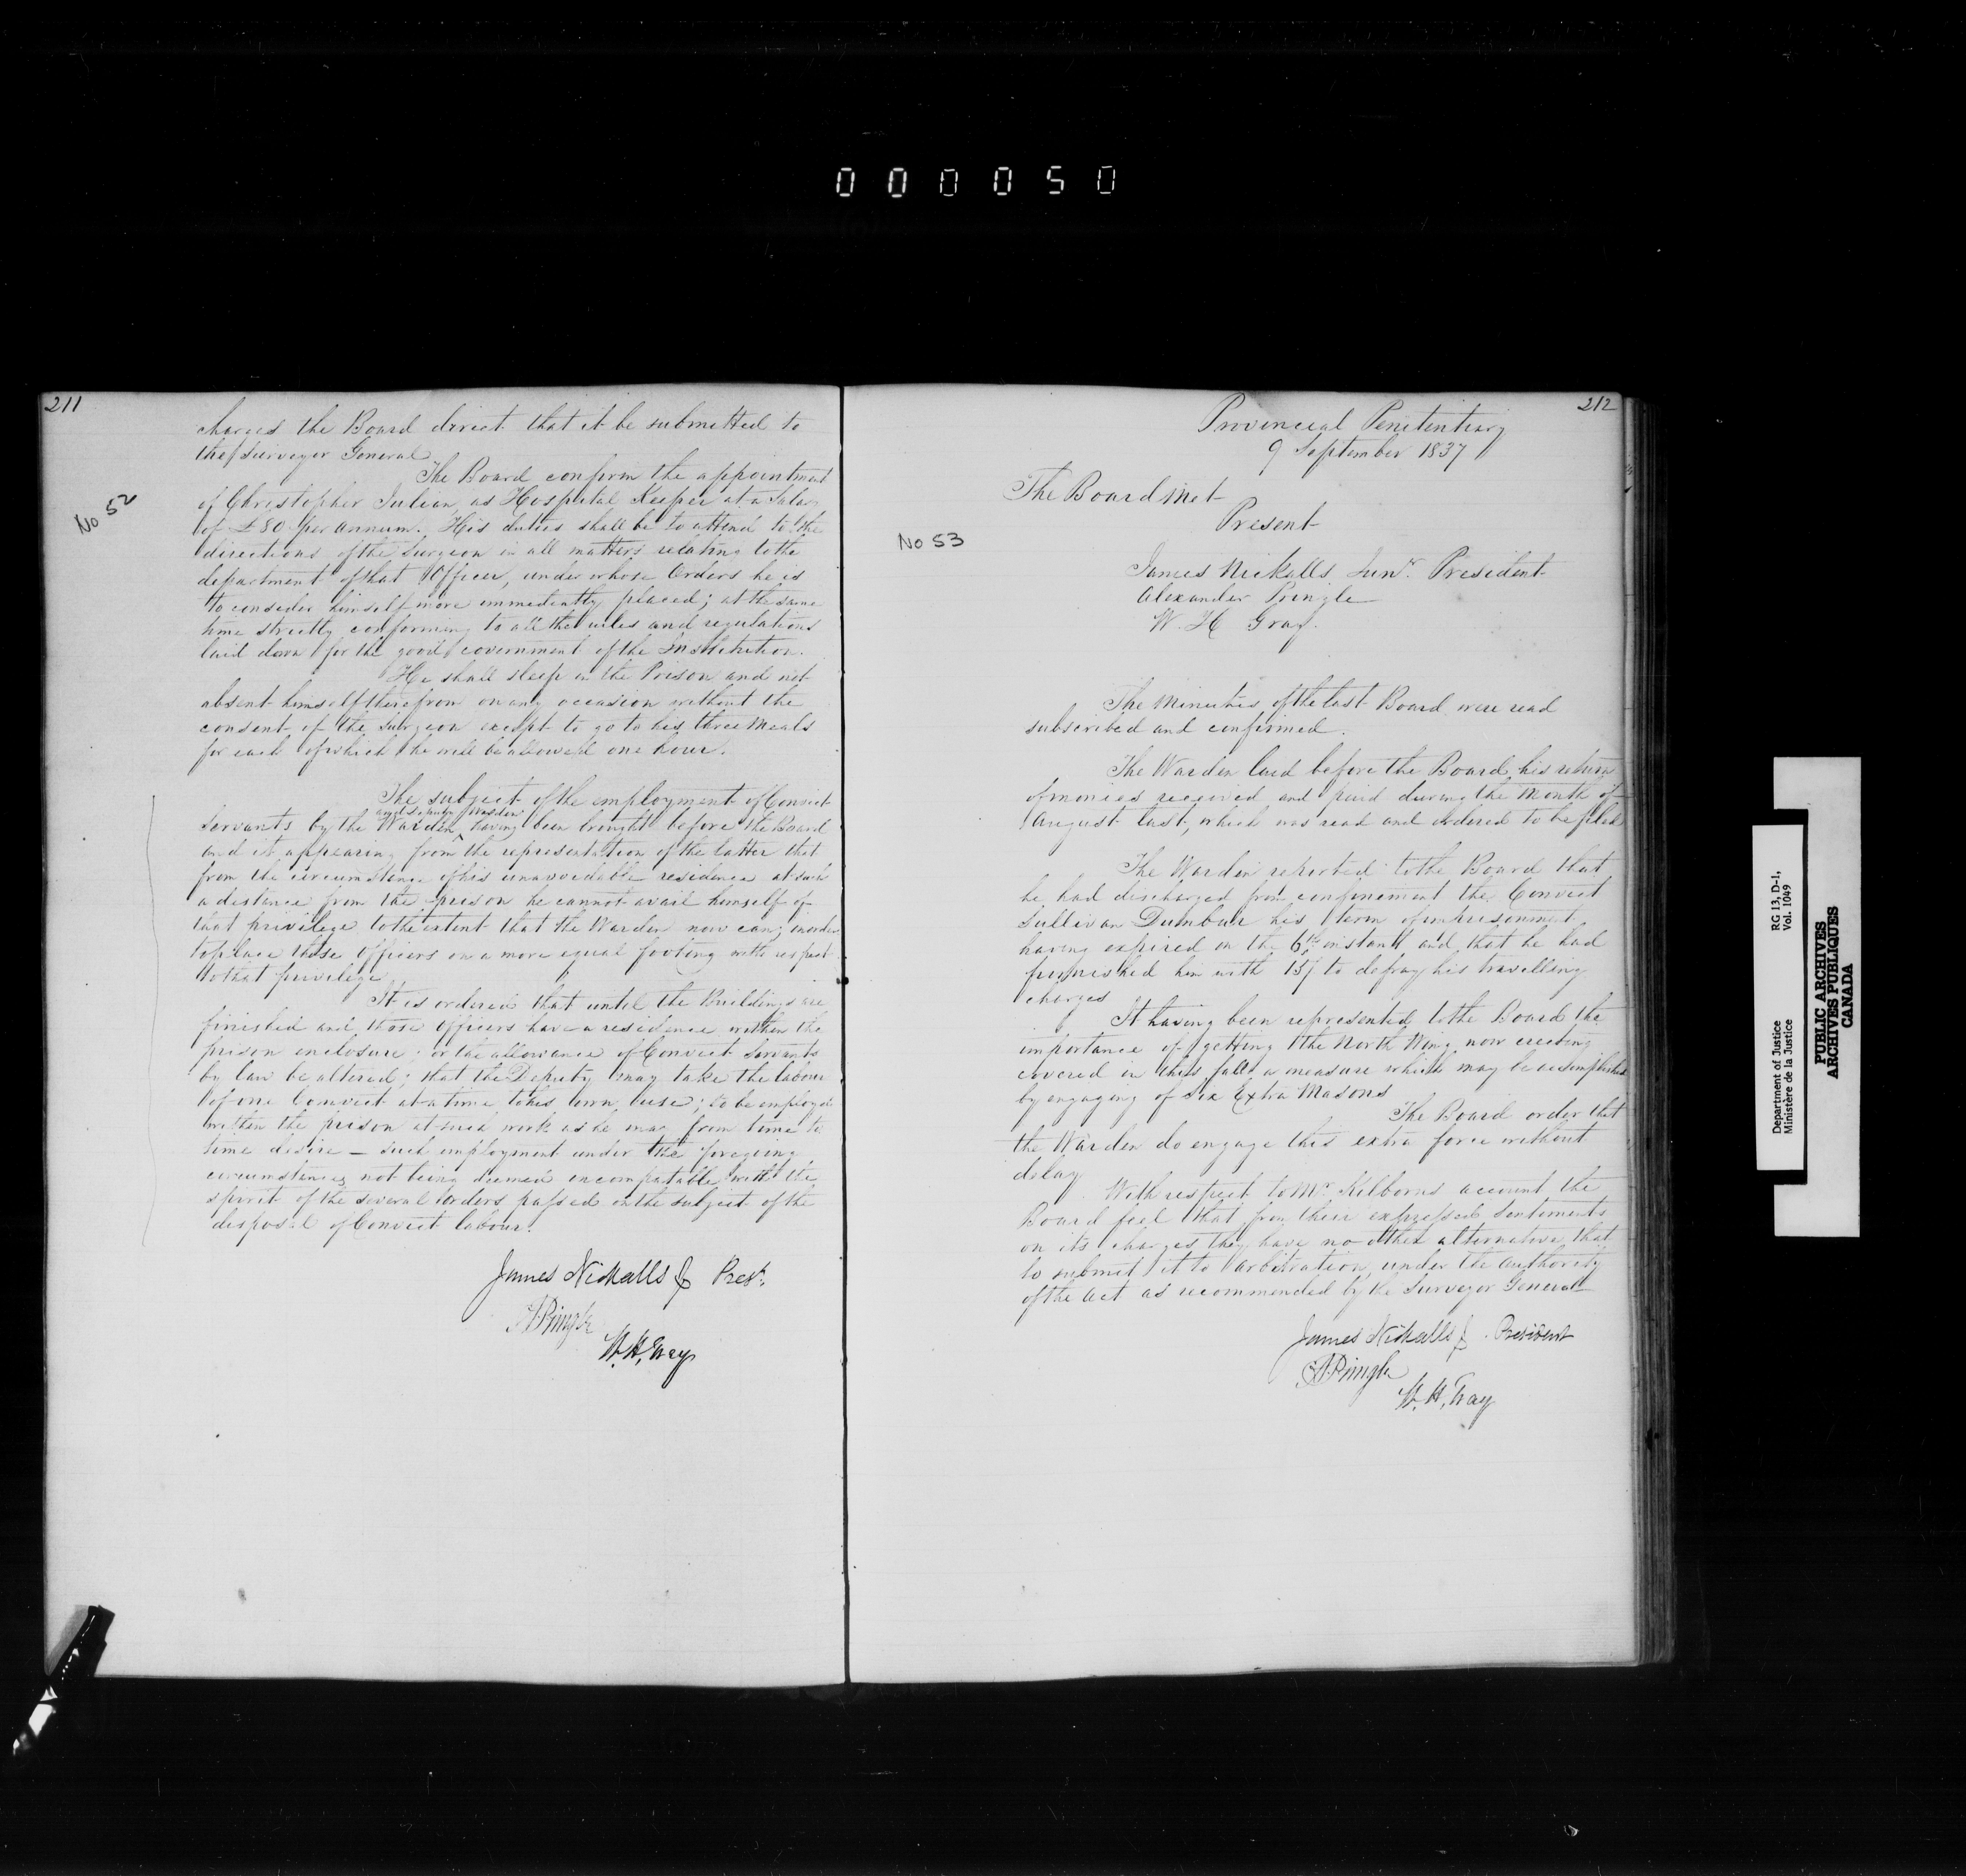 000050
211
charges the Board direct that it be submitted to
the Surveyor General
The Board confirm the appointment
No 52
of Christopher Julian as Hospital Keeper at a Salary
of £80 per annum. His duties shall be to attend to the
directions of the Surgeon in all matters relating to the
department of that Officer, under whose Orders he is
to consider himself more immediently placed; at the same
time strictly conforming to all the rules and regulations
laid down for the good government of the Institution.
He shall sleep in the Prison and not
absent himself therefrom on any occasion without the
consent of the Surgeon except to go to his three Meals
for each of which he will be allowed one hour.
The subject of the employment of Convict
and Deputy Warden
Servants by the Warden ^ having been brought before the Board
and it appearing from the representation of the latter that
from the circumstance of his unavoidable residence at such
a distance from the prison he cannot avail himself of
that privilege to the extent that the Warden now can; in order
to place these Officers on a more equal footing with respect
to that privilege
It is ordered that until the Buildings are
finished and those Officers have a residence within the
prison enclosure; or the allowance of Convict Servants
by law be altered; that the Deputy may take the labour
of one Convict at a time to his own use; to be employed
within the prison at such work as he may from time to
time desire — such employment under the foregoing
circumstances not being deemed incompatable with the
spirit of the several Orders passed on the subject of the
disposal of Convict labour.
James Nickalls Jr Prest.
A Pringle
W. H. Gray
212
Provincial Penitentiary
9 September 1837
The Board met
Present
No 53
James Nickalls Junr. President
Alexander Pringle
W. H Gray.
The Minutes of the last Board were read
subscribed and confirmed.
The Warden laid before the Board his return
of monies received and paid during the Month of
August last, which was read and ordered to be filed
The Warden reported to the Board that
he had discharged from confinement the Convict
Sullivan Dumbar his term of imprisonment
having expired on the 6th instant and that he had
furnished him with 15/ to defray his travelling
charges
It having been represented to the Board the
importance of getting the North Wing now erecting
covered in this fall, a measure which may be accomplished
by engaging of Six Extra Masons
The Board order that
the Warden do engage this extra force without
delay
With respect to Mr Kilborns account the
Board feel that from their expressed Sentiments
on its charges they have no other alternative that
to submit it to arbitration under the authority
of the Act as recommended by the Surveyor General
James Nickalls Jr. President
A Pringle
W. H. Gray
Department of Justice RG 13, D-1,
Ministère de la Justice Vol. 1049
PUBLIC ARCHIVES
ARCHIVES PUBLIQUES
CANADA